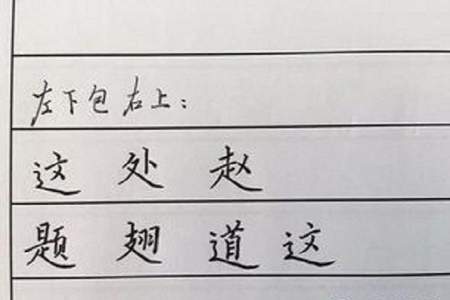 左下包右上：
这 处 赵
题 翅 道 这